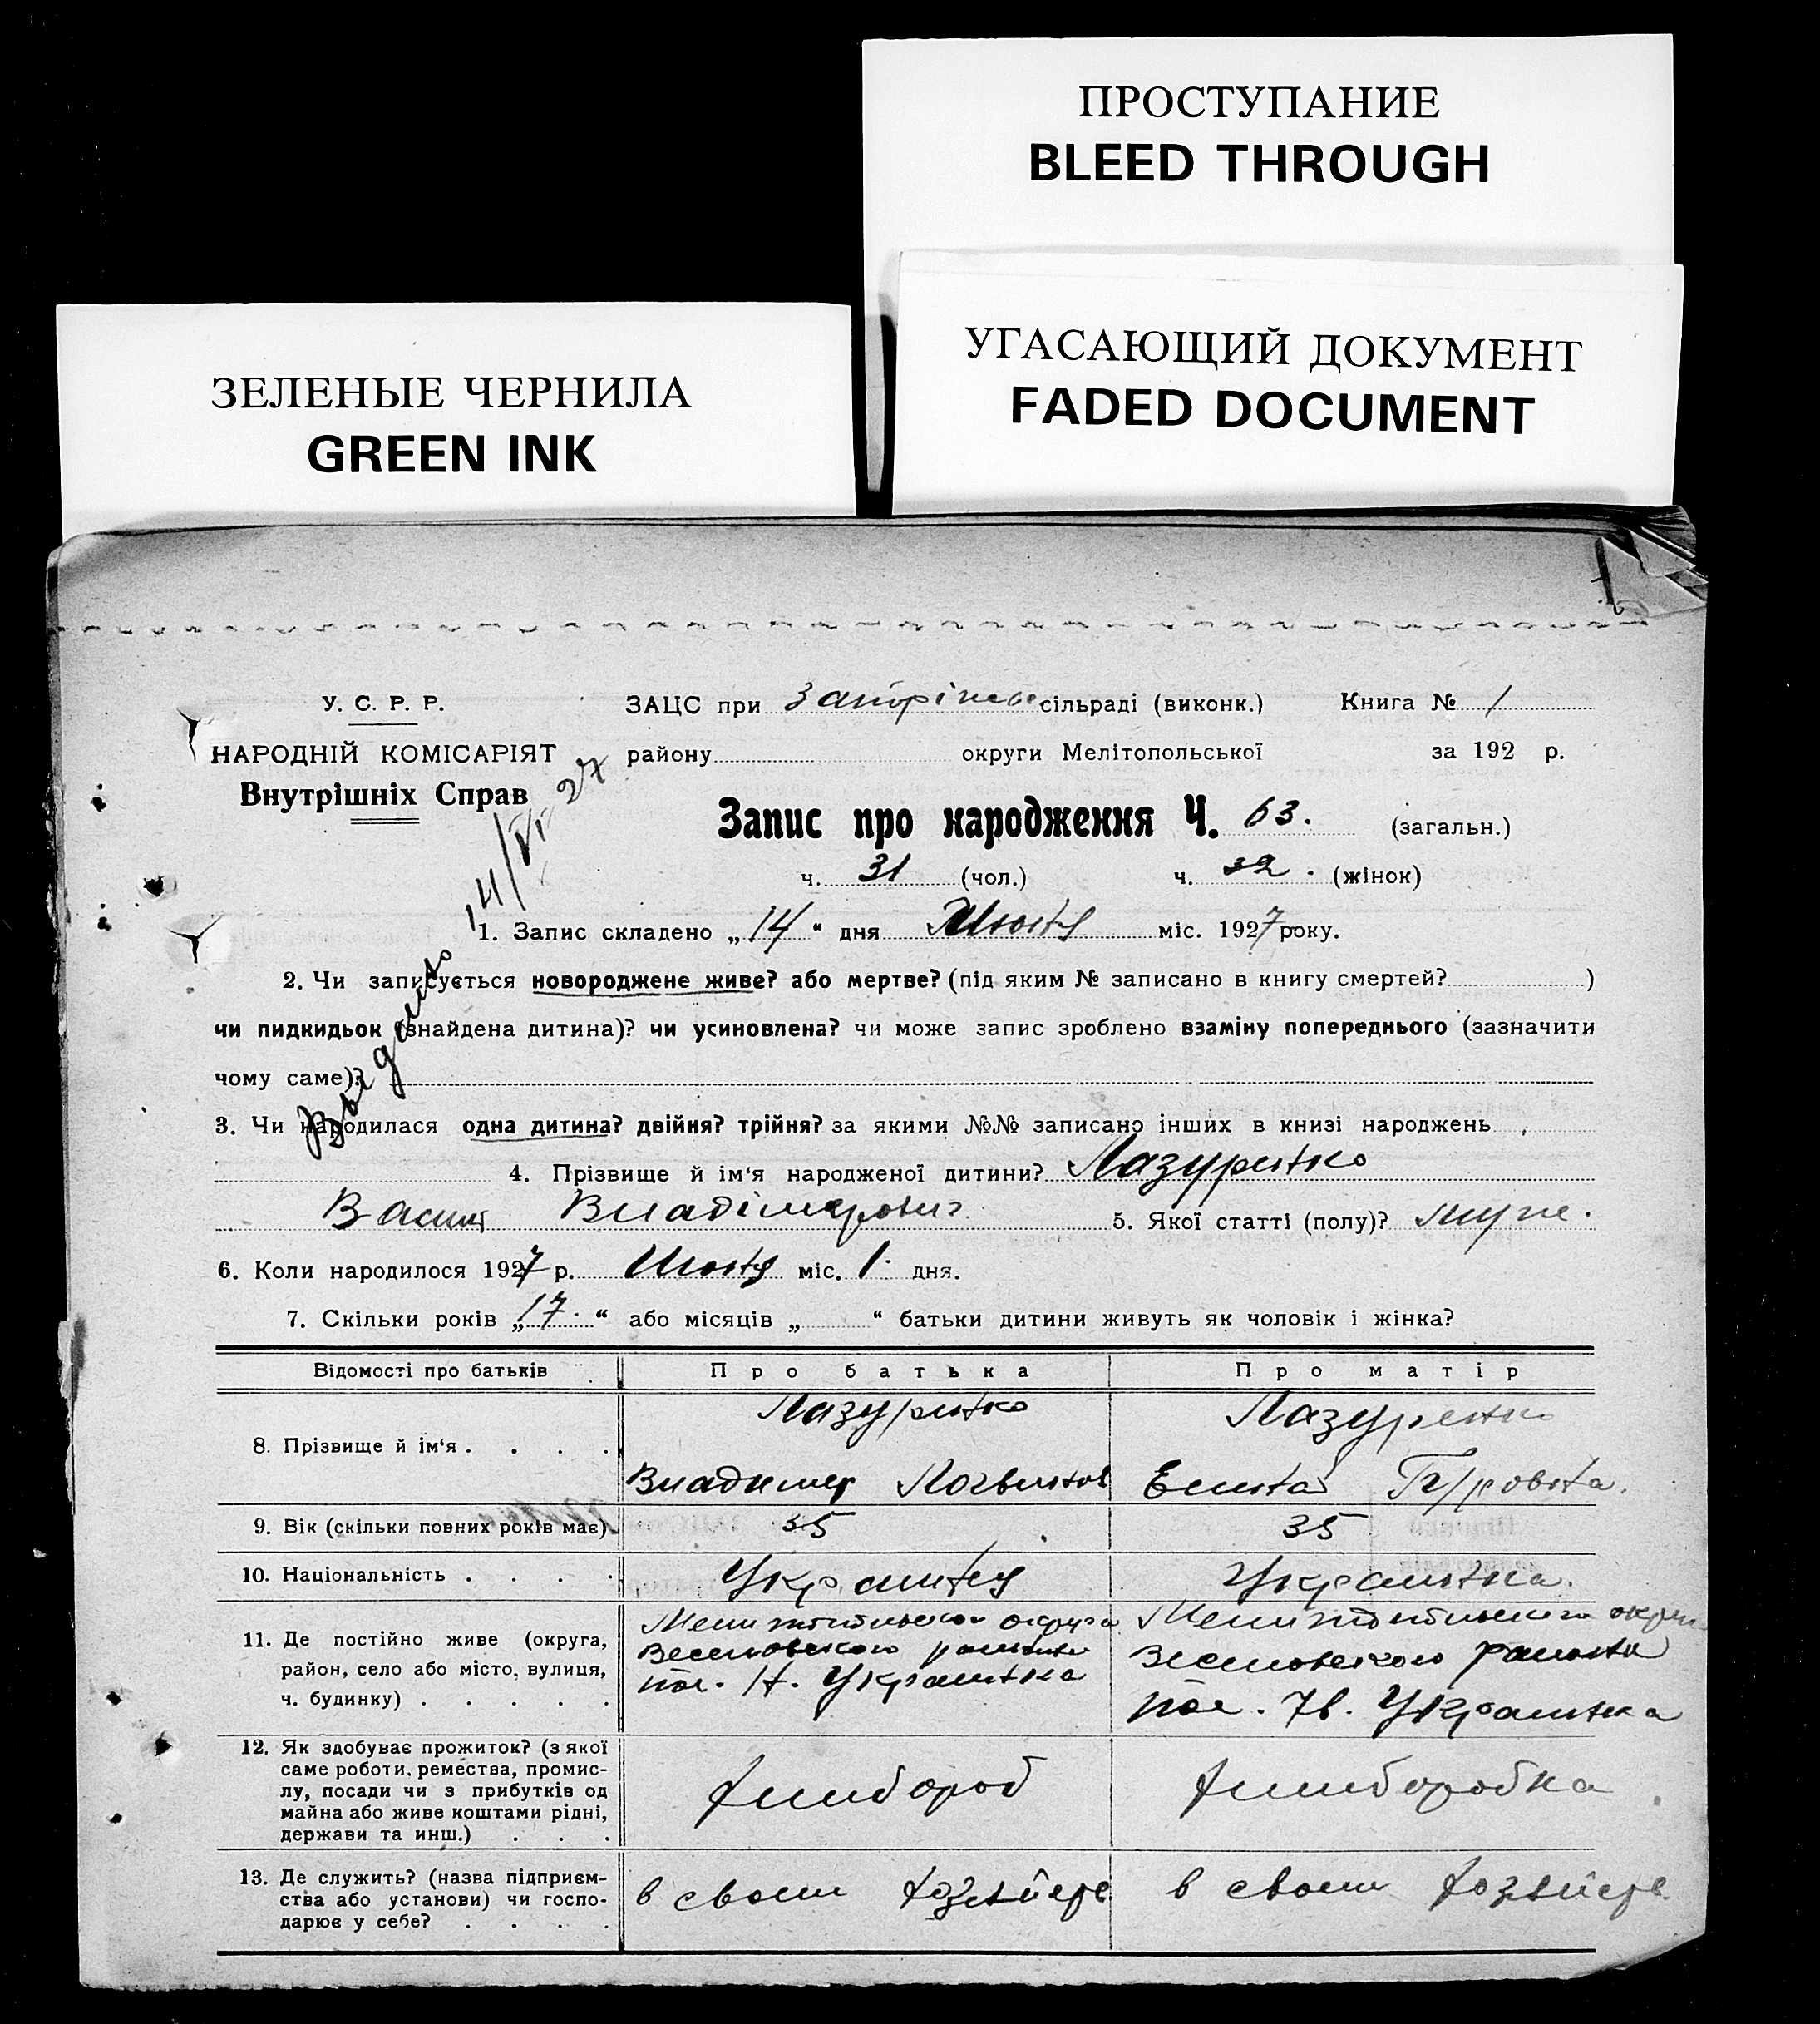 ПРОСТУПАНИЕ
BLEED THROUGH
УГАСАЮЩИЙ ДОКУМЕНТ
FADED DOCUMENT
ЗЕЛЕНЫЕ ЧЕРНИЛА
GREEN INK
У. С. Р. Р.
НАРОДНІЙ КОМІСАРІЯТ
Внутрішніх Справ
ЗАЦС при сільраді (виконк.) Книга № 1
району округи Мелітопольської за 192 р.
Запис про народження Ч. 63. (загальн.)
ч. 31 (чол.) ч. 32. (жінок)
Выдано 14/VI 27
1. Запис складено „14“ дня міс. 1927 року.
2. Чи записується новороджене живе? або мертве? (під яким № записано в книгу смертей? )
чи пидкидьок (знайдена дитина)? чи усиновлена? чи може запис зроблено взаміну попереднього (зазначити
чому саме)?
3. Чи народилася одна дитина? двійня? трійня? за якими №№ записано інших в книзі народжень
4. Прізвище й ім‘я народженої дитини? Лазуренко
Василь Владімерович 5. Якої статті (полу)? муже.
6. Коли народилося 1927 р. міс. 1. дня.
7. Скільки років „17.“ або місяців „ “ батьки дитини живуть як чоловік і жінка?
Відомості про батьків Про батька Про матір
8. Прізвище й ім‘я . . . . Лазуренко Лазуренко
Владимер Елена
9. Вік (скільки повних років має) 35 35
10. Національність . . . . Украинец Украинка.
11. Де постійно живе (округа, район, село або місто, вулиця, ч. будинку) . . . . .
Мелитопольской округа
Веселовского района
пос. Н. Украинка
Веселовского района
пос. Нв. Украинка
12. Як здобуває прожиток? (з якої саме роботи, ремества, промислу, посади чи з прибутків од майна або живе коштами рідні, держави та инш.) . . .
хлибороб хлиборобка
13. Де служить? (назва підприємства або установи) чи господарює у себе? . . . .
в своем в своем